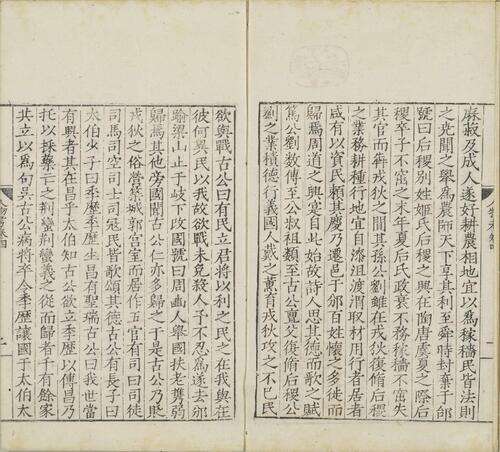 麻菽及成人遂好耕農相地宜以為稼穡民皆法則
之堯聞之舉為農師天下享其利至舜時封棄于邰
號曰后稷別姓姬氏后稷之興在陶唐虞夏之際后
稷卒子不窋之末年夏后氏政衰不務稼穡不窋失
其官而犇戎狄之間其孫公劉雖在戎狄復脩后稷
之業務耕種行地宜自漆沮渡渭取材用行者居者
咸有以資民賴其慶乃遷邑于邠百姓懷之多徙而
歸焉周道之興寔自此始故詩人思其德而歌之賦
篤公劉數傳公叔祖類至古公亶父復脩后稷公
劉之業積德行義國人戴之薰育戎狄攻之不已民
欲與戰古公曰有民立君將以利之民之在我與在
彼何異民以我故欲戰未免殺人子不忍為遂去邠
踰梁山止于岐下改國號曰周豳人舉國扶老攜弱
歸焉其他旁國聞古公仁亦多歸之于是古公乃貶
戎狄之俗營築城郭宮室而居作五官有司曰司徒
司馬司空司士司冠民皆歌頌其德古公有長子曰
太伯少子曰季歷季歷生昌有聖瑞古公曰我世當
有興者其在昌乎太伯知古公欲立季歷以傳昌乃
托以採藥亡之荊蠻荊蠻義之從而歸者千有餘家
共立以為句吳古公病將卒令季歷讓國于太伯太